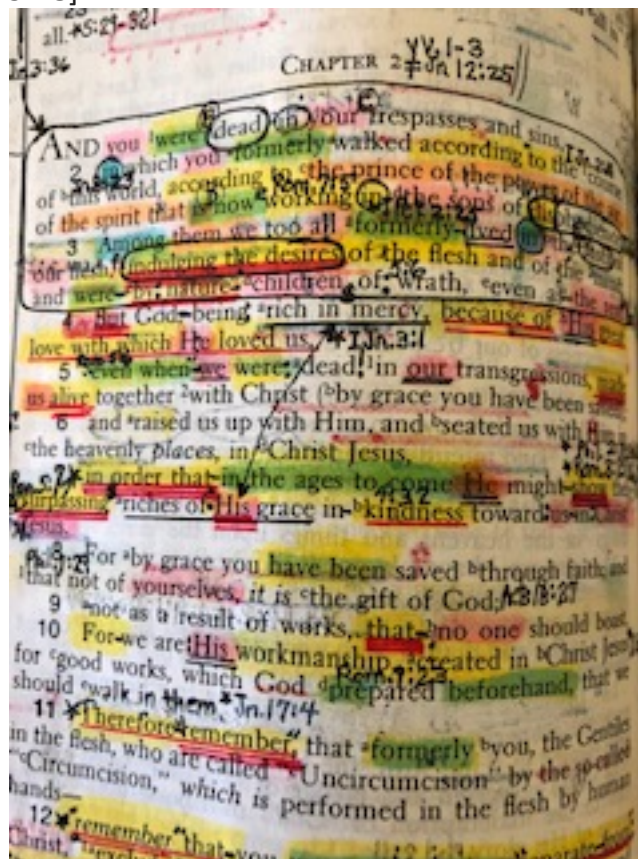 all. *5:29-32
Jn 3:36
VV. 1-3
CHAPTER 2 Jn 12:25
AND you were dead in your trespasses and sins,
2 in which you formerly walked according to the course
of this world, according to the prince of the power of the air,
of the spirit that is now working in the sons of
3 Among them we too all formerly lived in the
our flesh, indulging the desires of the flesh and of the
and were by nature children of wrath, even as the
4 But God, being rich in mercy, because of His great
love with which He loved us, * I Jn. 3:1
5 even when we were dead in our transgressions, made
us alive together with Christ (by grace you have been
6 and raised us up with Him, and seated us with Him in
the heavenly places, in Christ Jesus,
7 in order that in the ages to come He might show the
surpassing riches of His grace in kindness toward us in Christ
Jesus.
8 For by grace you have been saved through faith; and
that not of yourselves, it is the gift of God;
9 not as a result of works, that no one should boast.
10 For we are His workmanship, created in Christ Jesus
for good works, which God prepared beforehand, that we
Rom. 9:23
should walk in them. * Jn. 17:4
11 * Therefore remember, that formerly you, the Gentiles
in the flesh, who are called "Uncircumcision" by the so-called
"Circumcision," which is performed in the flesh by human
hands—
12 * remember that you
Christ,